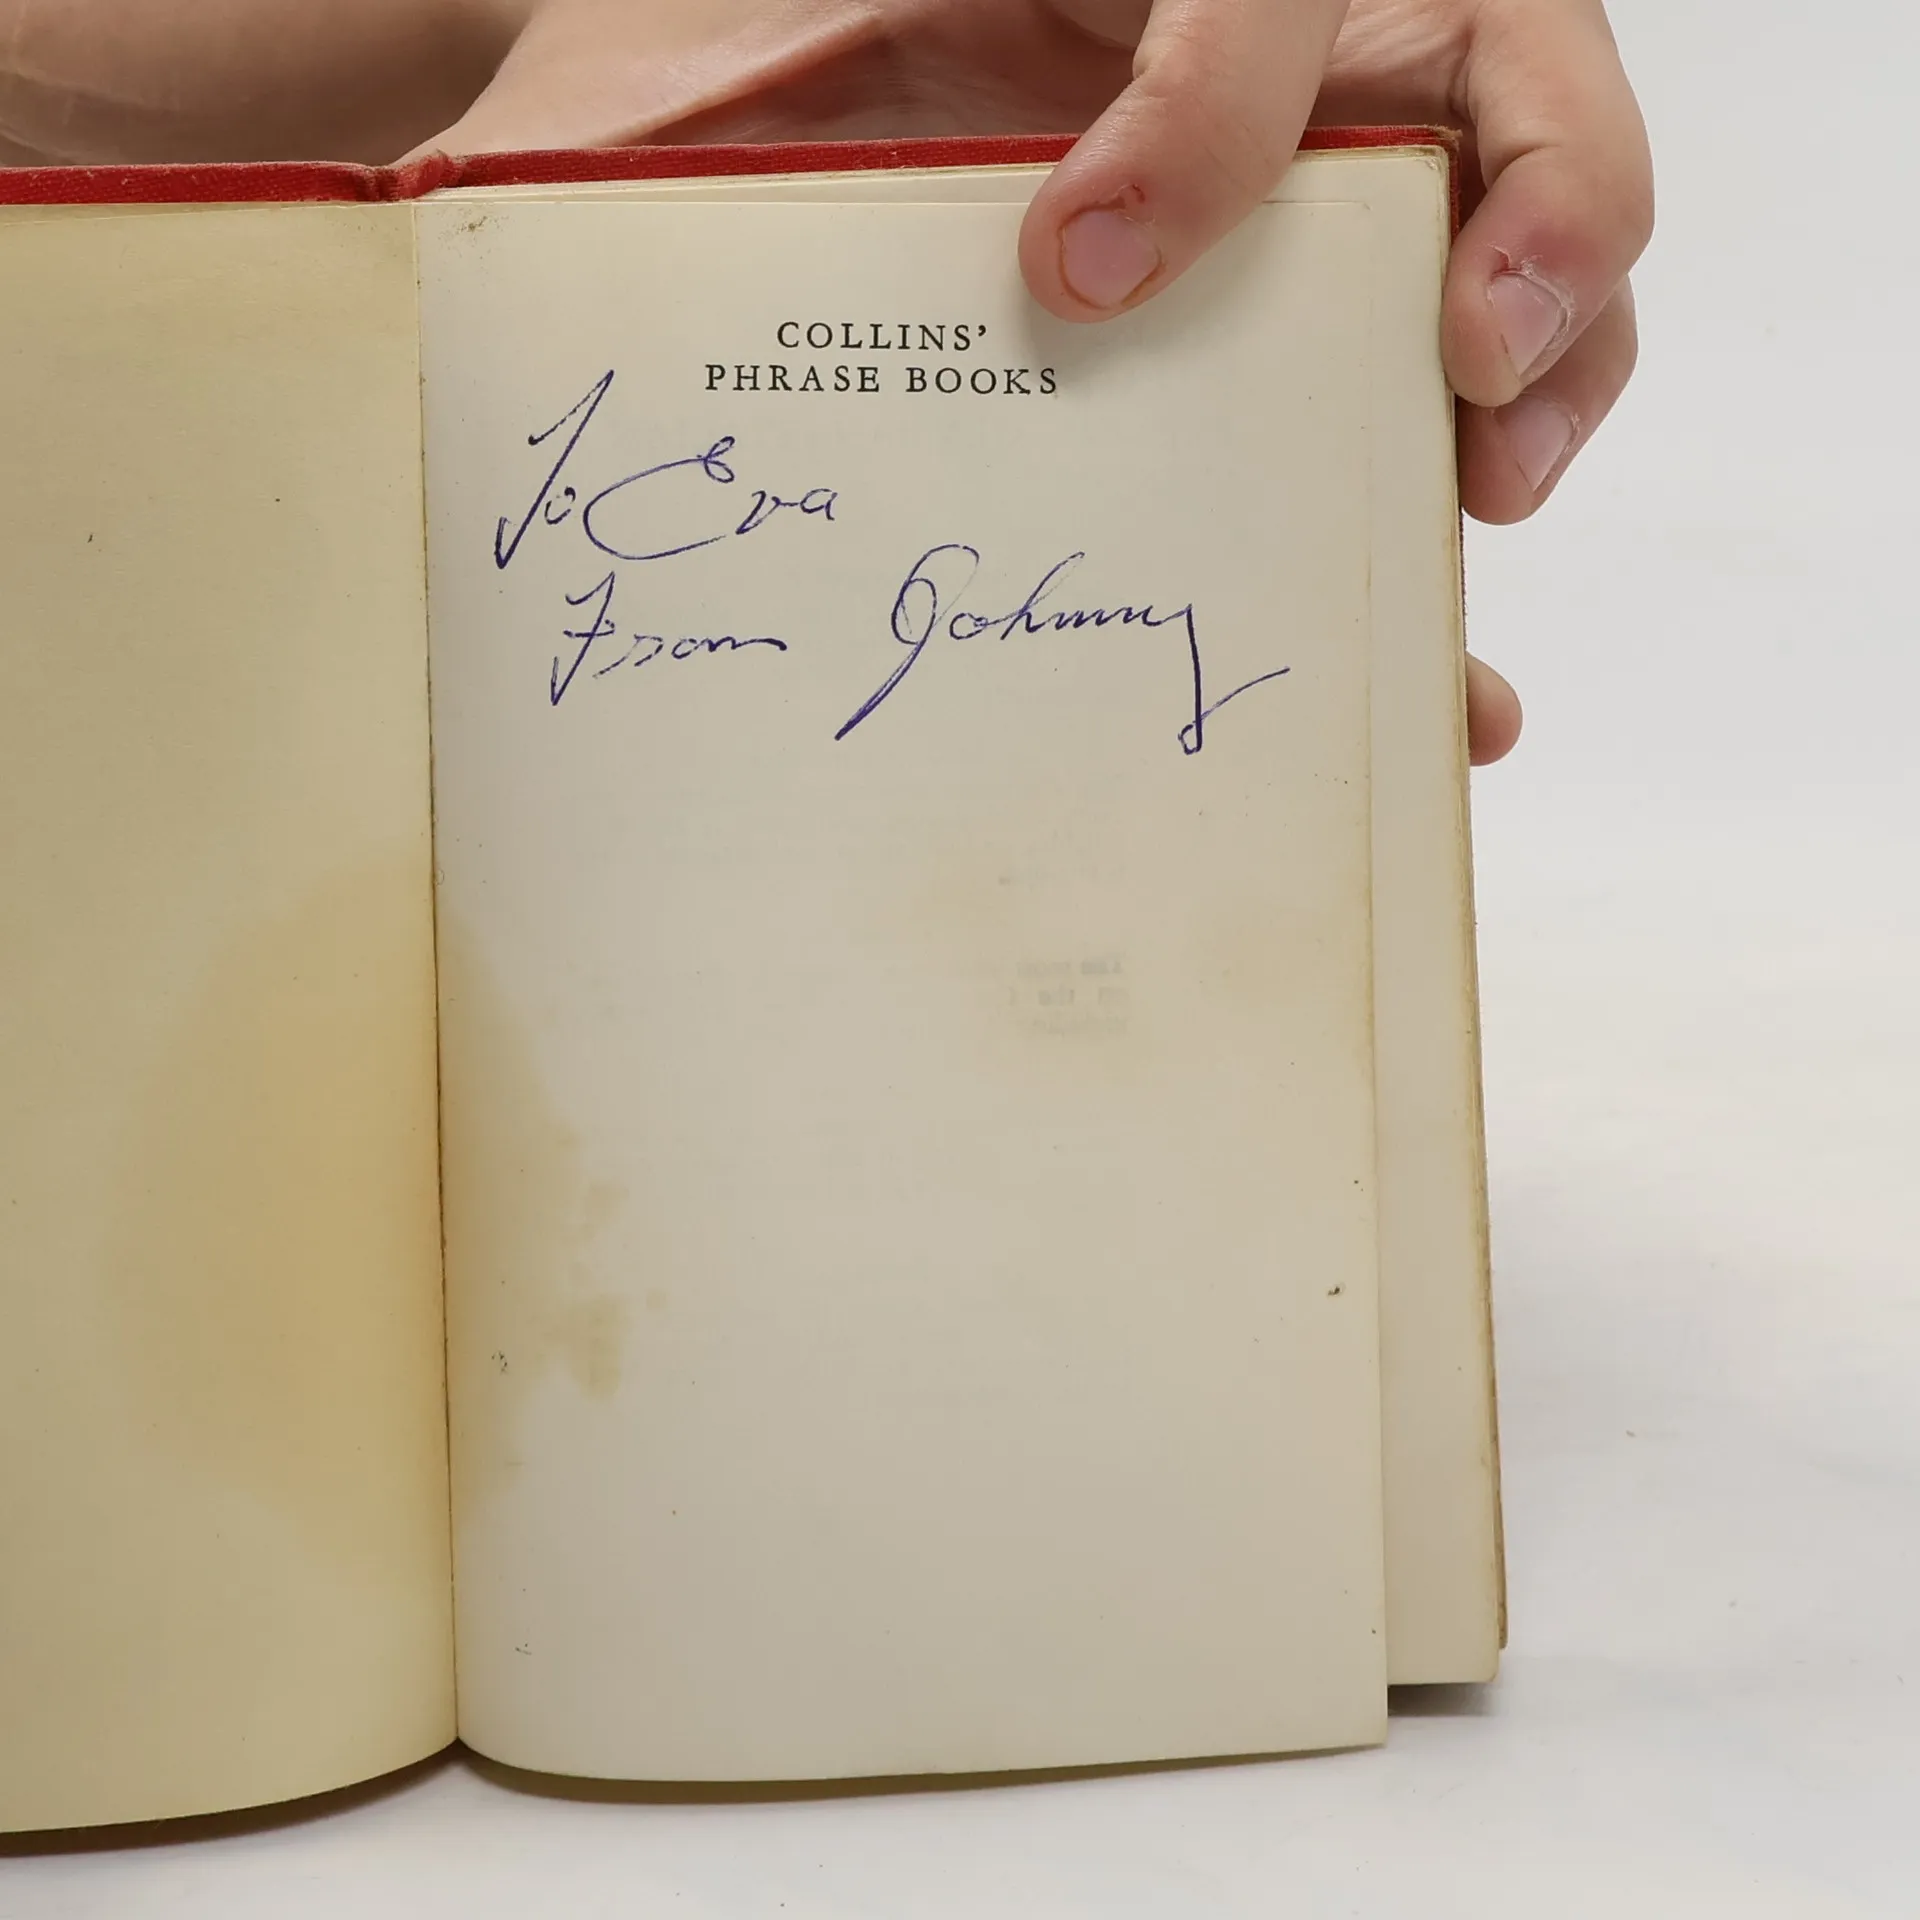 COLLINS'
PHRASE BOOKS
To Eva
From Johnny